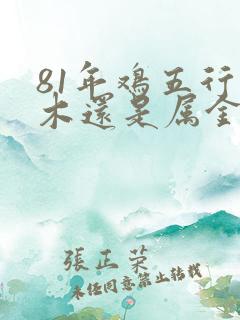 81年鸡五行
木還是属金
張正荣
未经同意禁止转载